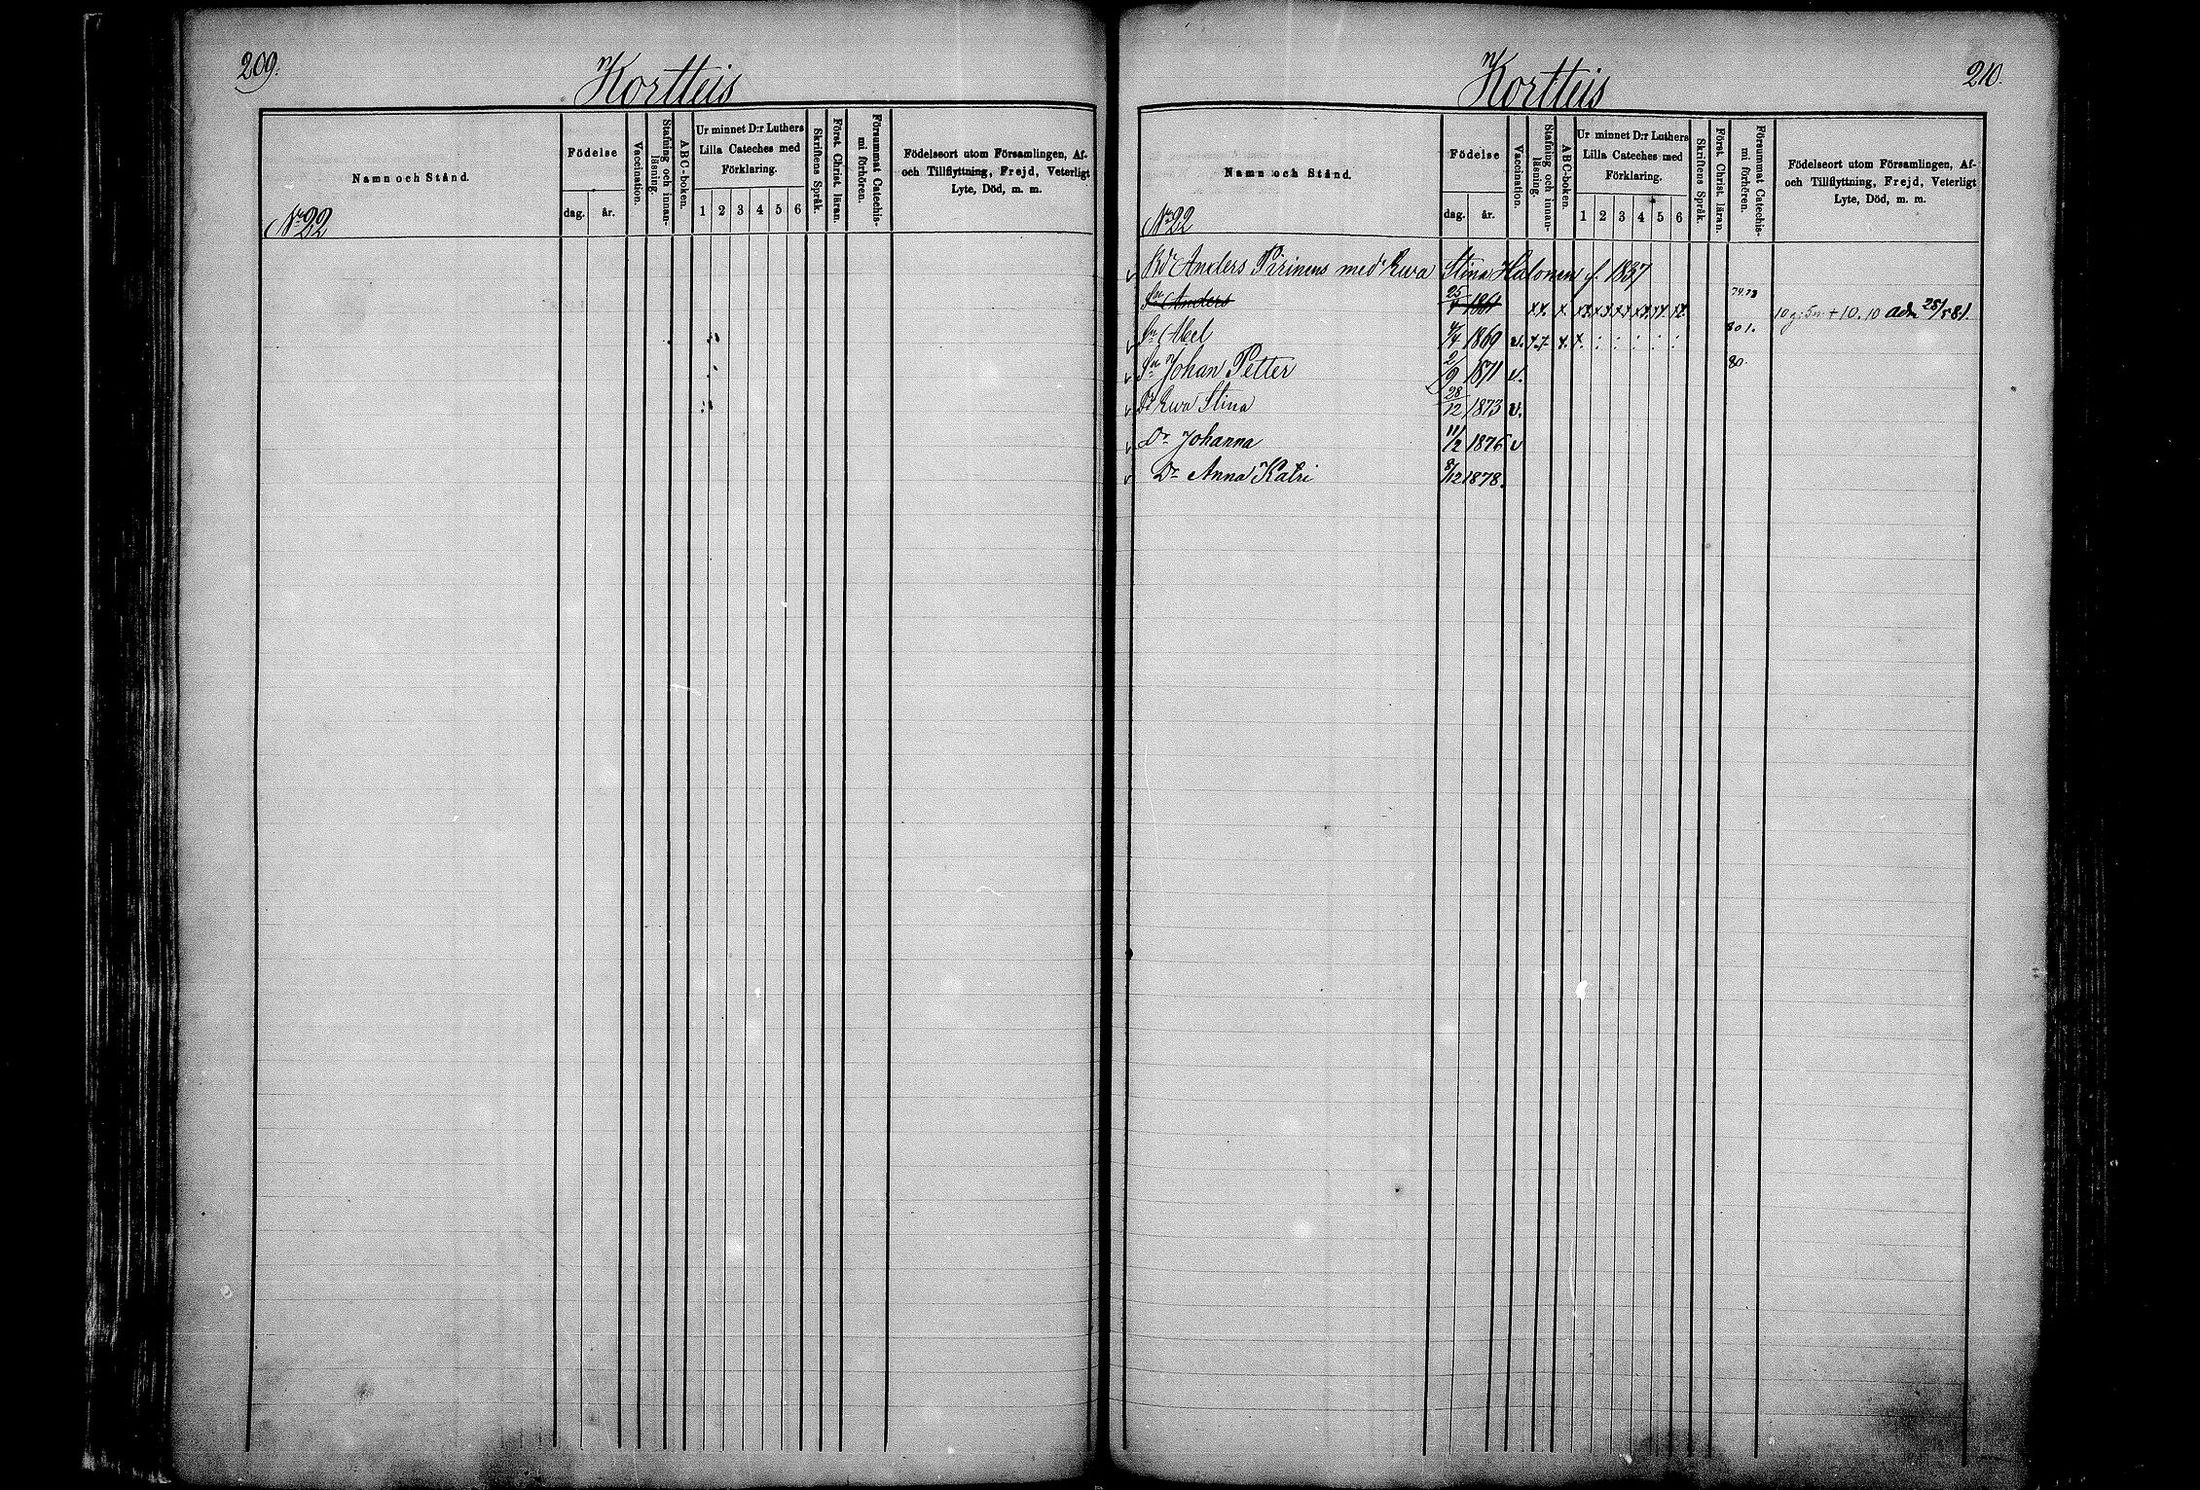 209.
n/Kortteis
Namn och Stånd.
Födelse
dag.
år.
Vaccination.
Stafning och innan-
läsning.
ABC-boken.
Ur minnet D:r Luthers
Lilla Cateches med
Förklaring.
1 2 3 4 5 6
Skriftens Språk.
Först. Christ. läran.
Försummat Catechis-
mi förhören.
Födelseort utom Församlingen, Af-
och Tillflyttning, Frejd, Veterligt
Lyte, Död, m. m.
No 22
n/Kortteis
210.
Namn och Stånd.
Födelse
dag.
år.
Vaccination.
Stafning och innan-
läsning.
ABC-boken.
Ur minnet D:r Luthers
Lilla Cateches med
Förklaring.
1 2 3 4 5 6
Skriftens Språk.
Först. Christ. läran.
Försummat Catechis-
mi förhören.
Födelseort utom Församlingen, Af-
och Tillflyttning, Frejd, Veterligt
Lyte, Död, m. m.
No 22
Anders Pirinens med Ewa Stina Halonen f. 1837
Sn Anders 1861 adm 25/5 81.
Sn Abel 1869 v. 80 1.
Sn Johan Petter 2/9 1871 v. 80
Dr Ewa Stina 28/12 1873 v.
Dr Johanna 11/2 1876 v
Dr Anna Katri 8/12 1878.